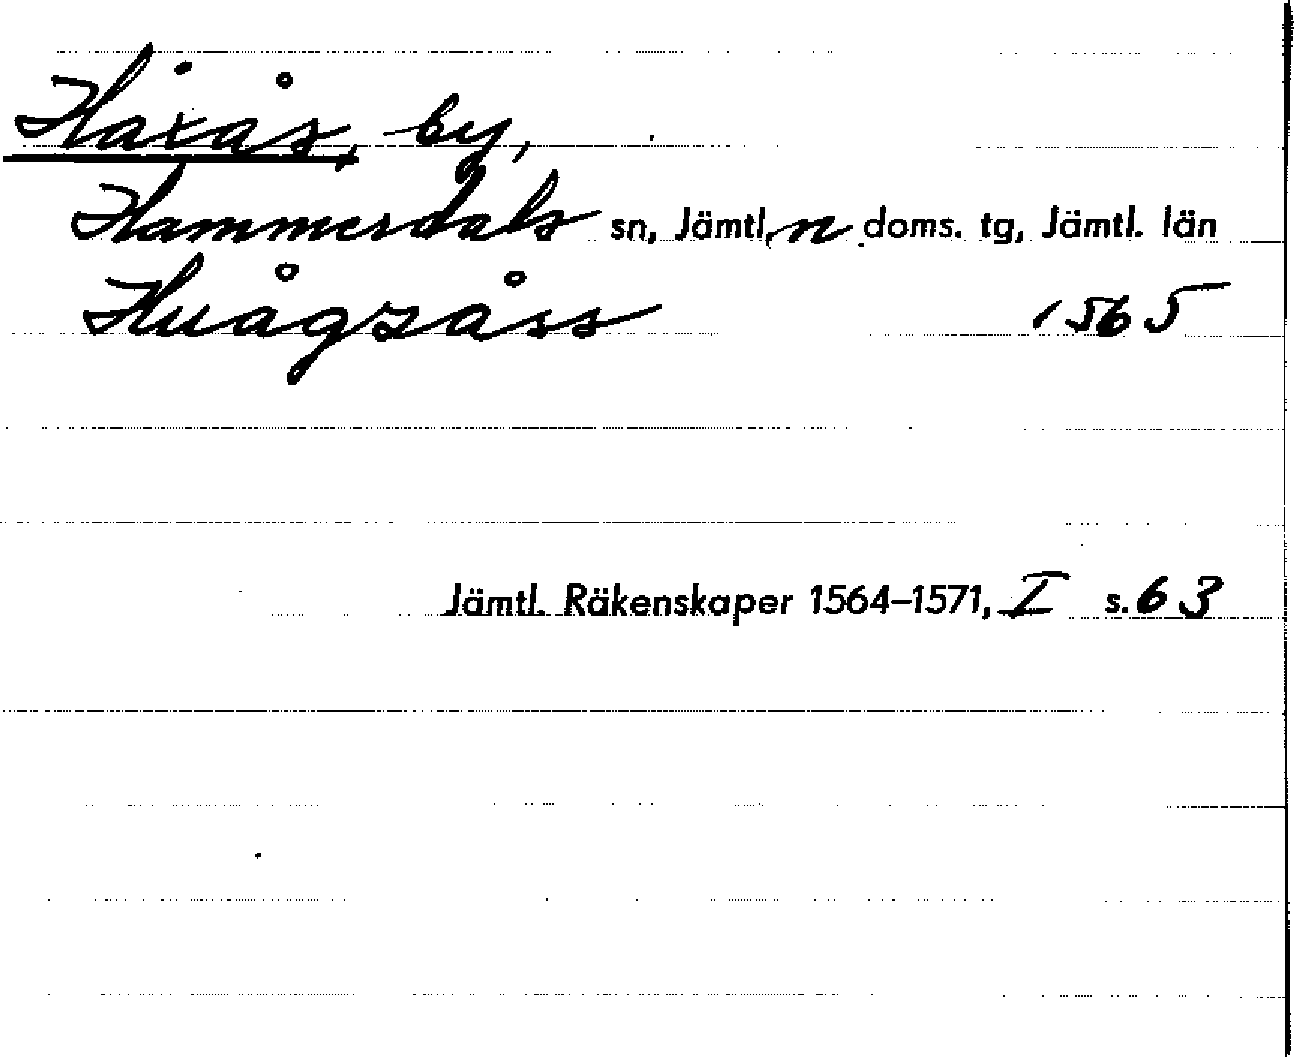 Håxås, by,
Hammerdals sn, Jämtl. n doms. tg, Jämtl. län
Huågzåss 1565
Jämtl. Räkenskaper 1564–1571, I s. 63